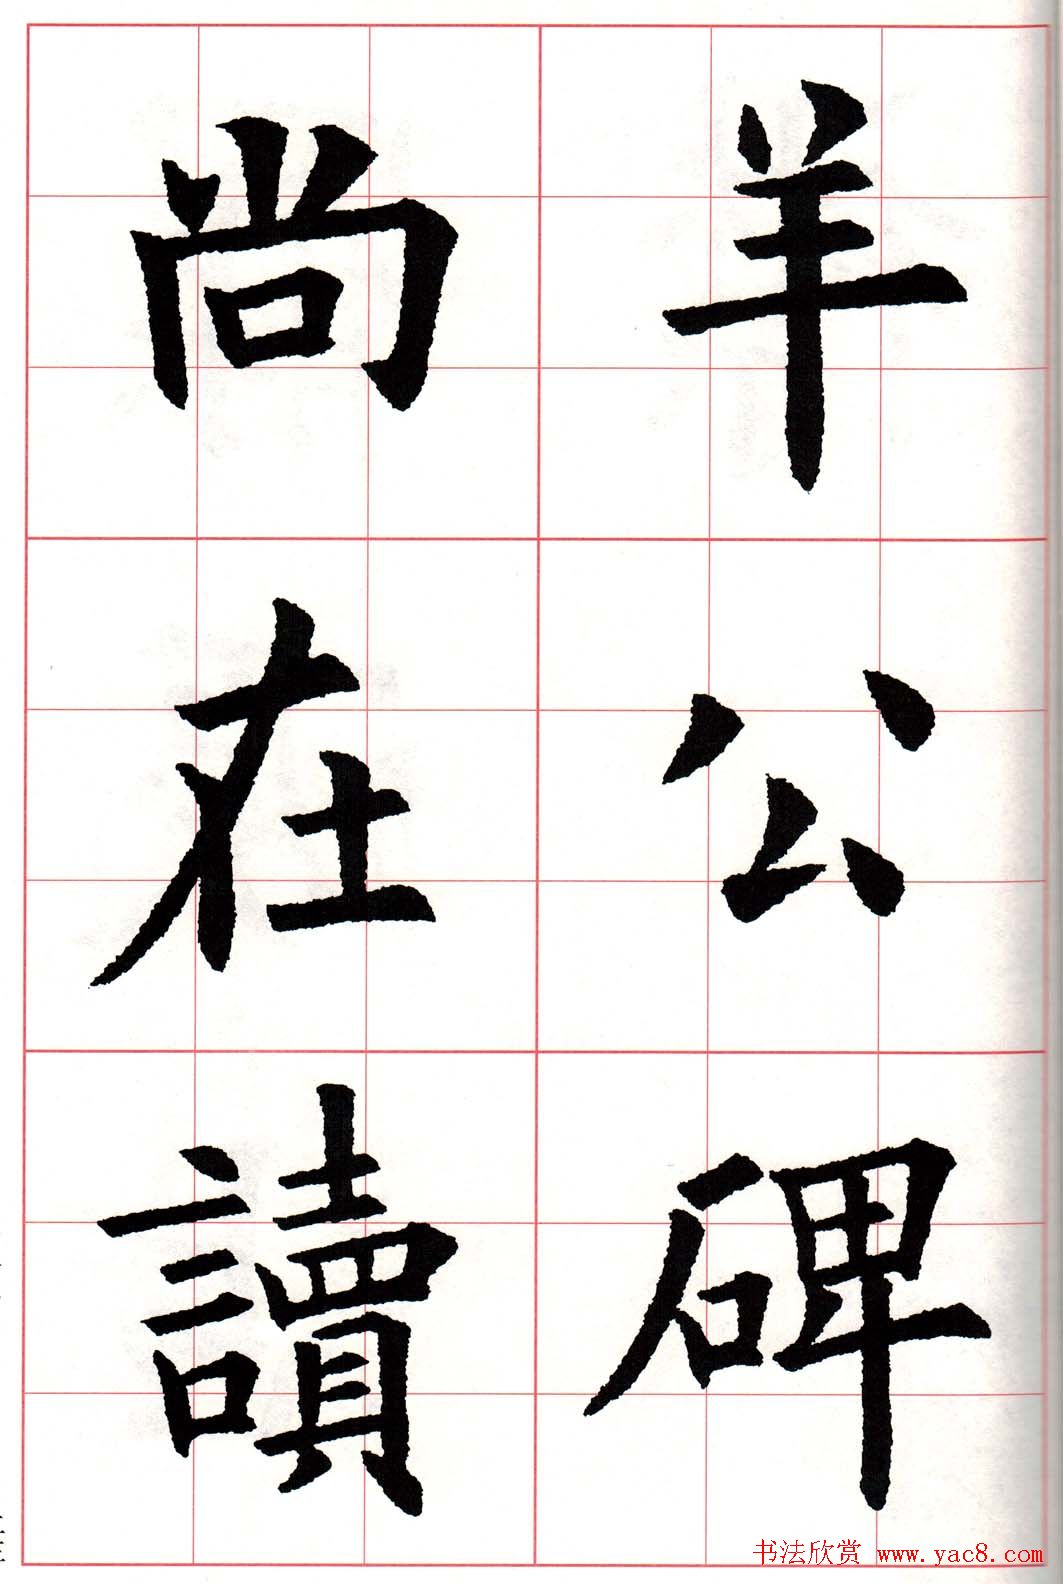 羊公碑
尚在讀
书法欣赏 www.yac8.com